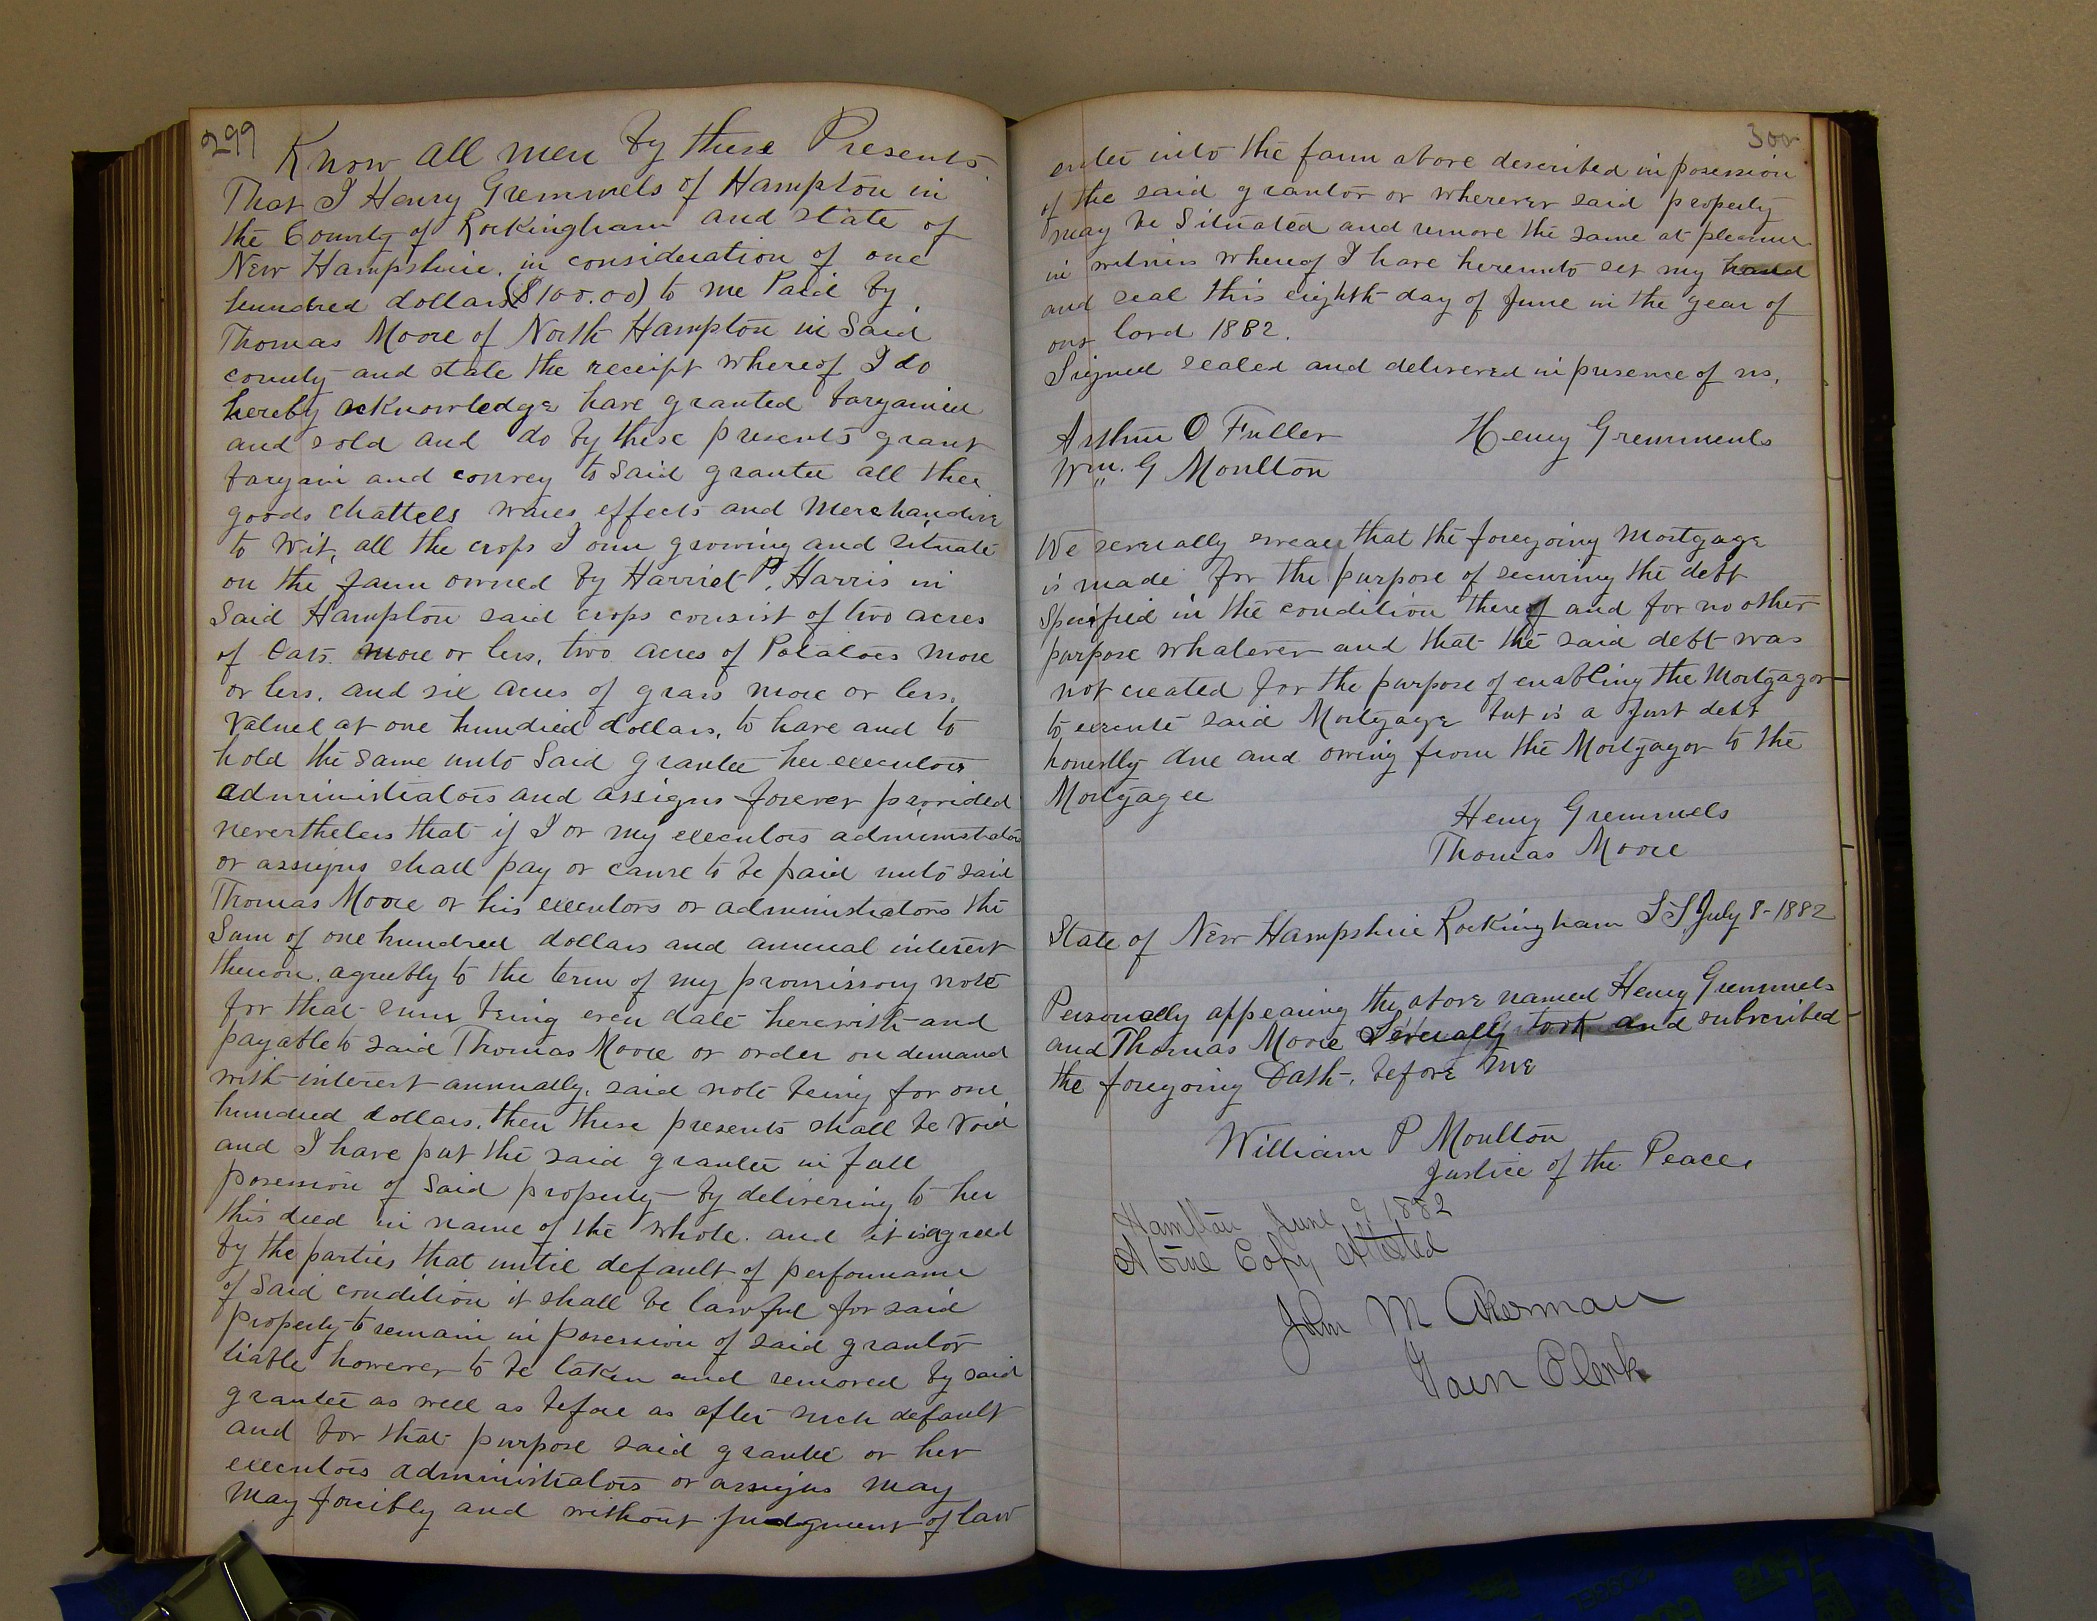 299
Know all men by these Presents
That I Henry Gremmels of Hampton in
the County of Rockingham and state of
New Hampshire, in consideration of one
hundred dollars ($100.00) to me Paid by
Thomas Moore of North Hampton in Said
county and state the receipt whereof I do
hereby acknowledge have granted bargained
and sold and do by these presents grant
bargain and convey to said grantee all the
goods chattels wares effects and Merchandise
to wit, all the crops I own growing and situate
on the farm owned by Harriet P. Harris in
Said Hampton said crops consist of two acres
of Oats more or less, two acres of Potatoes more
or less, and six acres of grass more or less,
Valued at one hundred dollars, to have and to
hold the same unto Said grantee her executors
administrators and assigns forever provided
nevertheless that if I or my executors administrators
or assigns shall pay or cause to be paid unto said
Thomas Moore or his executors or administrators the
Sum of one hundred dollars and annual interest
thereon, agreebly to the term of my promissory note
for that sum being even date herewith and
payable to said Thomas Moore or order on demand
with interest annually, said note being for one
hundred dollars, then these presents shall be void
and I have put the said grantee in full
posession of said property by delivering to her
this deed in name of the whole. and it is agreed
by the parties that until default of performance
of said condition it shall be lawful for said
property to remain in posession of said grantor
liable however to be taken and removed by said
grantee as well as before as after such default
and for that purpose said grantee or her
executors administrators or assigns may
may forcibly and without judgment of law
300
enter into the farm above described in posession
of the said grantor or wherever said property
may be Situated and remove the same at pleasure
in witness whereof I have hereunto set my hand
and seal this eighth day of June in the year of
our lord 1882.
Signed sealed and delivered in presence of us,
Arthur O Fuller Henry Gremmels
Wm. G Moulton
We severally swear that the foregoing Mortgage
is made for the purpose of securing the debt
Specified in the condition thereof and for no other
purpose whatever and that the said debt was
not created for the purpose of enabling the Mortgagor
to execute said Mortgage but is a Just debt
honestly due and owing from the Mortgagor to the
Mortgagee
Henry Gremmels
Thomas Moore
State of New Hampshire Rockingham SS July 8-1882
Personally appearing the above named Henry Gremmels
and Thomas Moore Severally took and subscribed
the foregoing Oath, before me
William P Moulton
Justice of the Peace
Hampton June 9 1882
A true Copy Attested
John M Akerman
Town Clerk